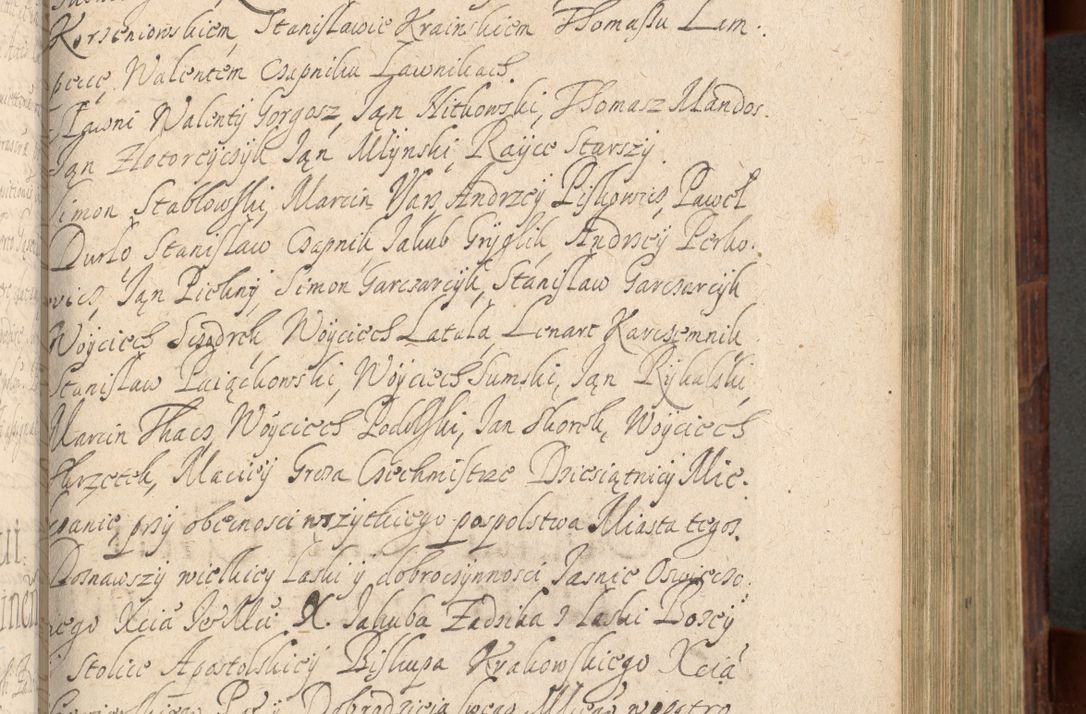 Korzeniowskiem Stanisławie Kraińskiem Thomaszu Lem-
percie, Walentem Czapniku Ławnikach.
Ławni Walenty Gorgosz, Jąn Nitkowski, Thomasz Mandos.
Jąn Złotorcyczyk Jąn Młynski, Rayce Starszy.
Simon Stabłowski, Marcin Wąs Andrzey Piskowicz, Paweł
Durło Stanisław Czapnik, Jakub Gryglik, Andrzey Perko-
wicz, Jąn Piekny Simon Garczarcyk, Stanisław Garczarcyk
Woyciech Szodrek, Woyciech Latała, Lenart Karczemnik
Stanisław Paciąckowski, Woyciech Sumski, Jąn Rykalski,
Marcin Thacz, Woyciech Podolski, Jan Skorek, Woyciech
Skrzetek, Maciey Groza Czechmistrze Dziesiątnicy Mie-
szczanie, przy obecnosci wszytkiego pospolstwa Miasta tegoz.
Doznawszy wielkiey łaski y dobroczynnosci Jasnie Oswieco-
nego Xcia Je° Mci X. Jakuba Zadzika z łaski Bozey
i Stolice Apostolskiey Biskupa Krakowskiego Xcia
Siewierskiego Pana y Dobrodzieia